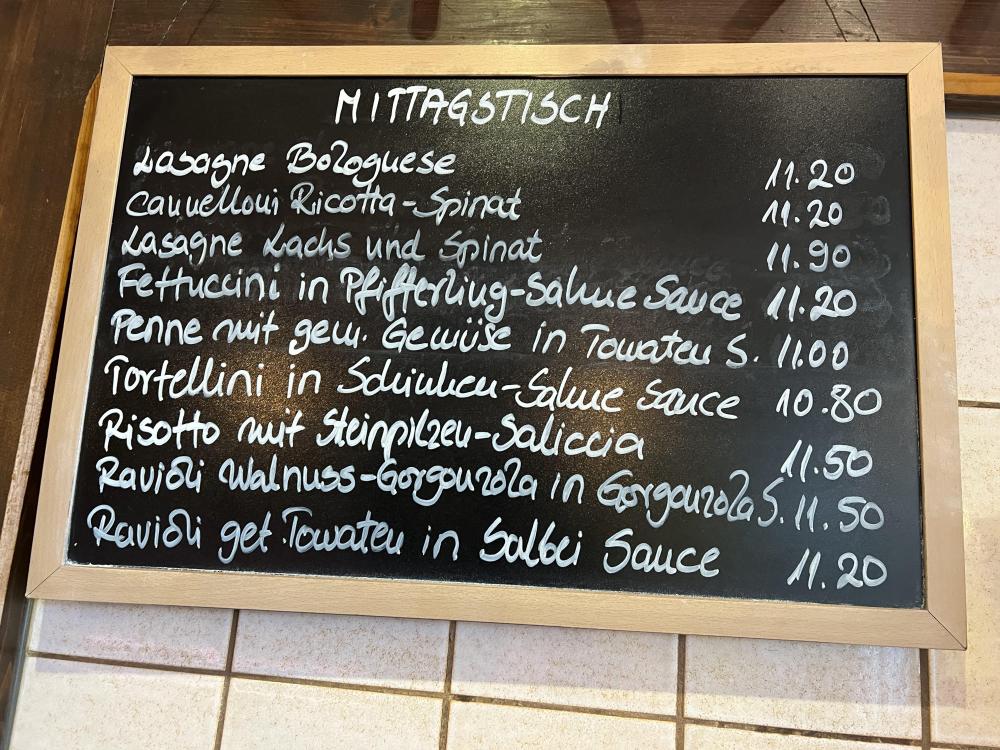 MITTAGSTISCH
Lasagne Bolognese 11.20
Cannelloni Ricotta-Spinat 11.20
Lasagne Lachs und Spinat 11.90
Fettuccini in Pfifferling-Sahne Sauce 11.20
Penne mit gem. Gemüse in Tomaten S. 11.00
Tortellini in Schinken-Sahne Sauce 10.80
Risotto mit Steinpilzen-Saliccia 11.50
Ravioli Walnuss-Gorgonzola in Gorgonzola S. 11.50
Ravioli get. Tomaten in Salbei Sauce 11.20